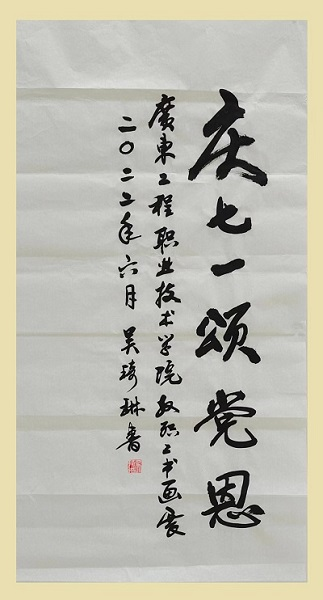 庆七一颂党恩
廣東工程职业技术学院教职工书画展
二〇二二年六月吴琦琳書